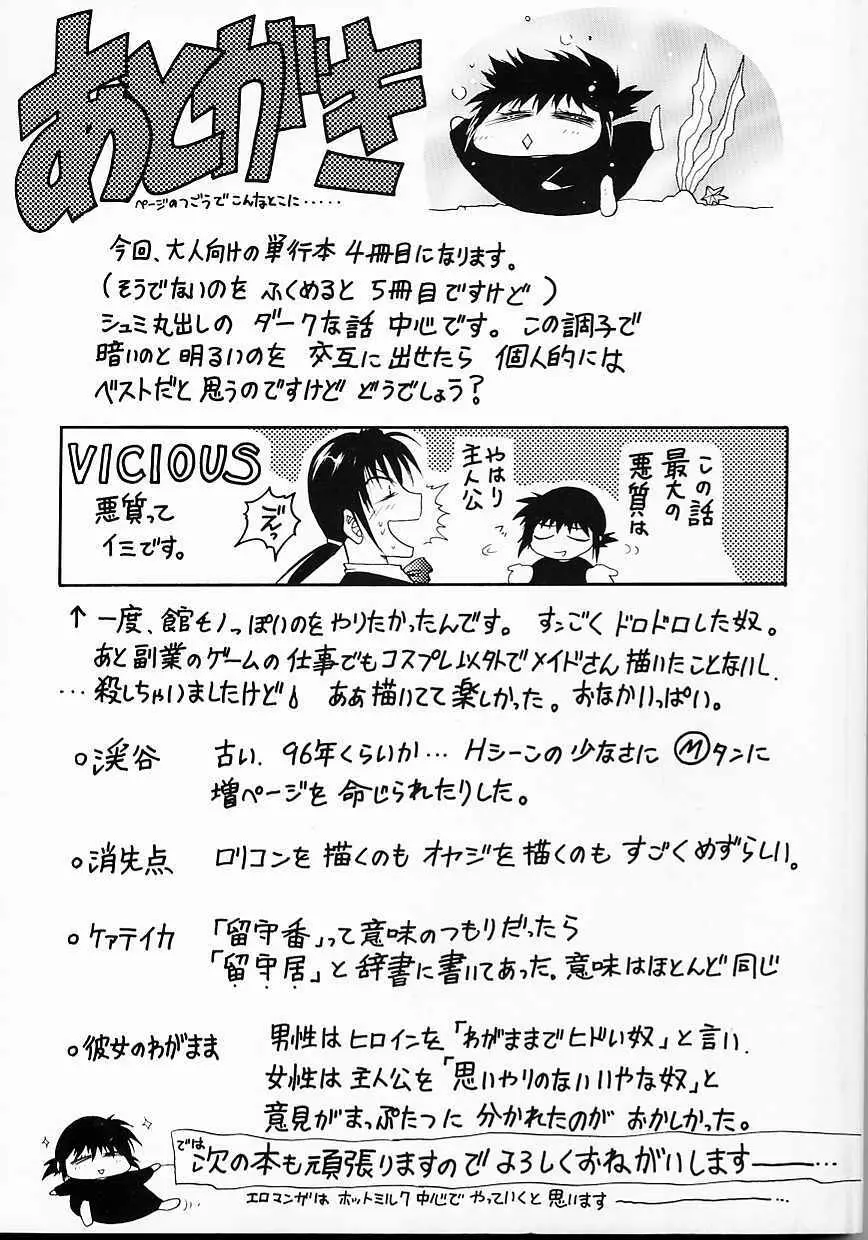 あとがき
ページのつごうで こんなとこに・・・・・
今回、大人向けの単行本 4冊目になります。
(そうでないのを ふくめると 5冊目ですけど)
シュミ丸出しの ダークな話 中心です。この調子で
暗いのと 明るいのを 交互に 出せたら 個人的には
ベストだと 思うのですけど どうでしょう?
VICIOUS
悪質って
イミです。
この話
最大の
悪質は
やはり
主人公
ぞえっ
↑ 一度、館モノっぽいのを やりたかったんです。 すンごく ドロドロした奴。
あと副業のゲームの仕事でもコスプレ以外でメイドさん描いたことないし、
…殺しちゃいましたけど ああ描いてて楽しかった。おなかいっぱい。
○渓谷 古い、96年くらいか… Hシーンの少なさに Ⓜタンに
増ページを 命じられたりした。
○消失点 ロリコンを 描くのも オヤジを 描くのも すごくめずらしい。
○ケァテイカ 「留守番」って意味のつもりだったら
「留守居」と辞書に書いてあった。意味はほとんど同じ
○彼女のわがまま 男性はヒロインを「わがままでヒドい奴」と言い、
女性は主人公を「思いやりのないいやな奴」と
意見がまっぷたつに 分かれたのが おかしかった。
では
次の本も頑張りますので よろしくおねがいします――…
エロマンガは ホットミルク 中心で やっていくと 思います――…